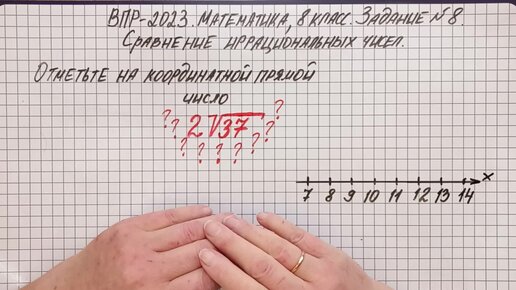 ВПР-2023. Математика, 8 класс. Задание №8.
Сравнение иррациональных чисел.
Отметьте на координатной прямой
число
? ? 2√37 ? ? ?
? ? ? ? ?
x
7 8 9 10 11 12 13 14